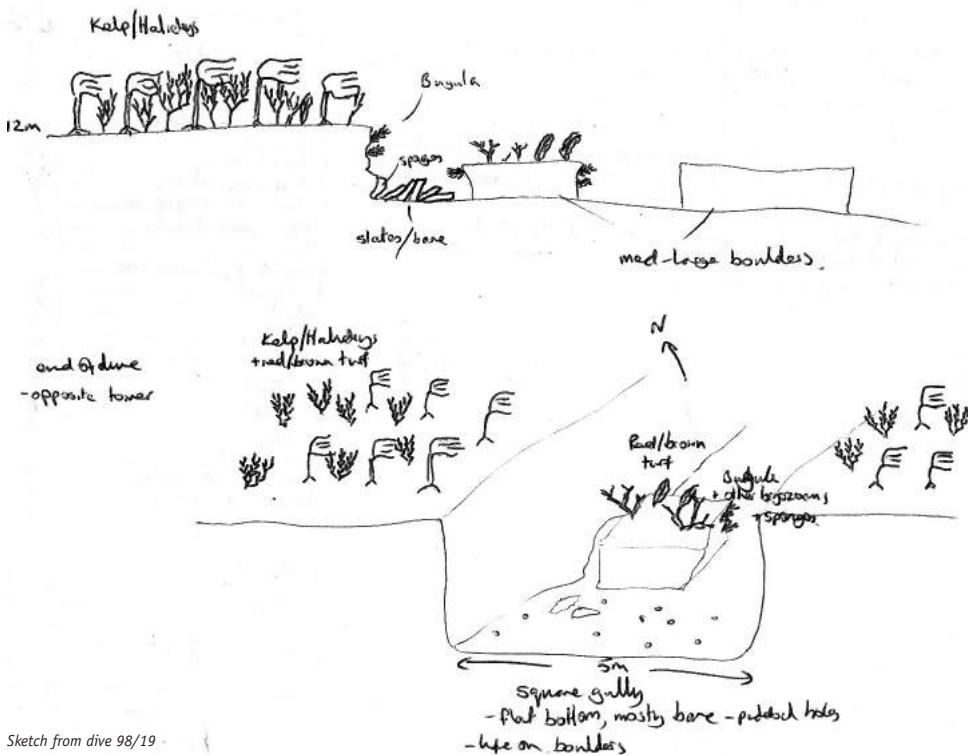 Kelp/Halidrys
Bugula
12m
sponges
slates/bare
med-large boulders.
end of dive
-opposite tower
Kelp/Halidrys
+red/brown turf
N
Red/brown
turf
Bugula
+ other bryozoans
+ sponges
5m
square gully
-flat bottom, mostly bare - piddock holes
-life on boulders
Sketch from dive 98/19